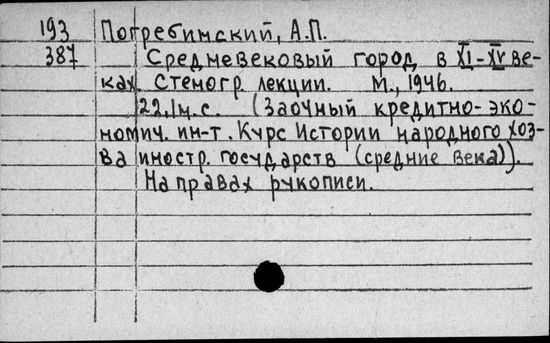 193 Погребинский, А.П.
387 Средневековый город в XI-XV ве-
ках. Стеногр. лекции. М., 1946.
22,1м.с. (Заочный кредитно-эко-
номич. ин-т. Курс Истории народного хоз-
ва иностр. государств (средние века)).
На правах рукописи.